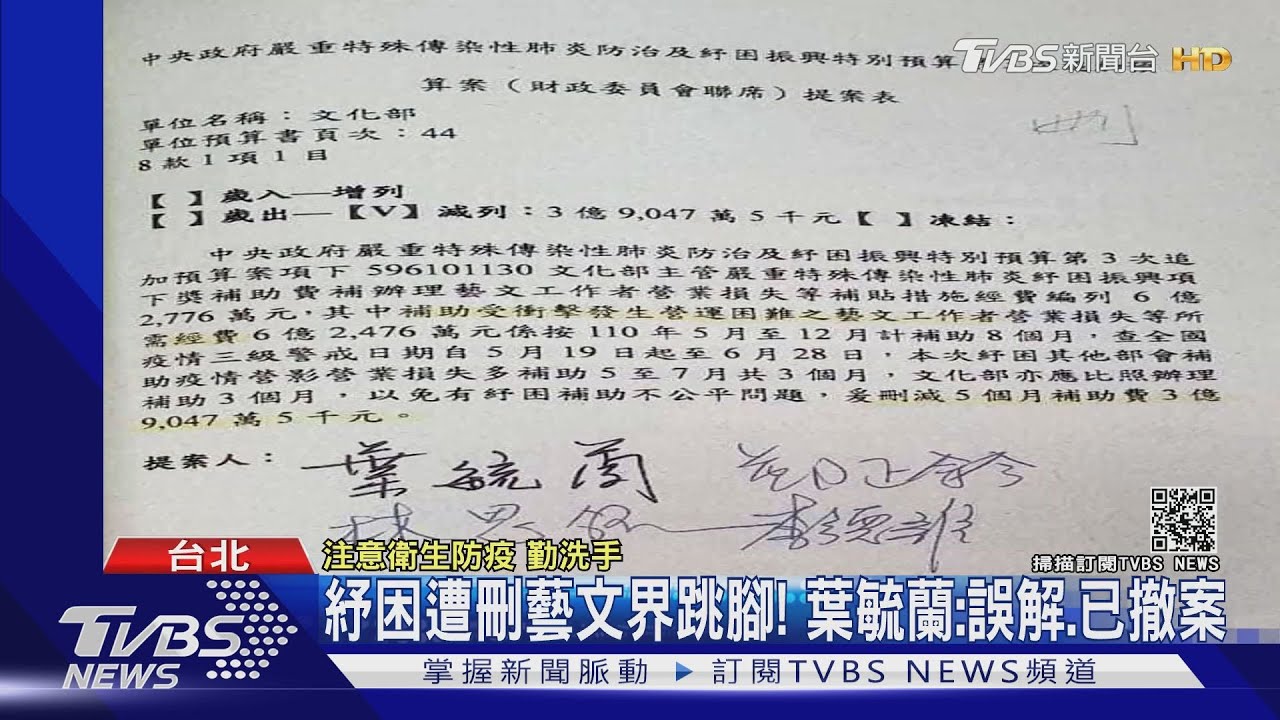 中央政府嚴重特殊傳染性肺炎防治及紓困振興特別預算
TVBS新聞台 HD
算案（財政委員會聯席）提案表
刪
單位名稱：文化部
單位預算書頁次：44
8款1項1目
【 】歲入—增列
【 】歲出—【V】減列：3億9,047萬5千元【 】凍結：
中央政府嚴重特殊傳染性肺炎防治及紓困振興特別預算第3次追
加預算案項下596101130文化部主管嚴重特殊傳染性肺炎紓困振興項
下獎補助費補辦理藝文工作者營業損失等補貼措施經費編列6億
2,776萬元，其中補助受衝擊發生營運困難之藝文工作者營業損失等所
需經費6億2,476萬元係按110年5月至12月計補助8個月，查全國
疫情三級警戒日期自5月19日起至6月28日，本次紓困其他部會補
助疫情營影營業損失多補助5至7月共3個月，文化部亦應比照辦理
補助3個月，以免有紓困補助不公平問題，爰刪減5個月補助費3億
9,047萬5千元。
提案人：
葉毓蘭
林思銘
李德維
掃描訂閱TVBS NEWS
台北
注意衛生防疫 勤洗手
紓困遭刪藝文界跳腳!葉毓蘭:誤解.已撤案
TVBS NEWS
掌握新聞脈動 ▶ 訂閱TVBS NEWS頻道